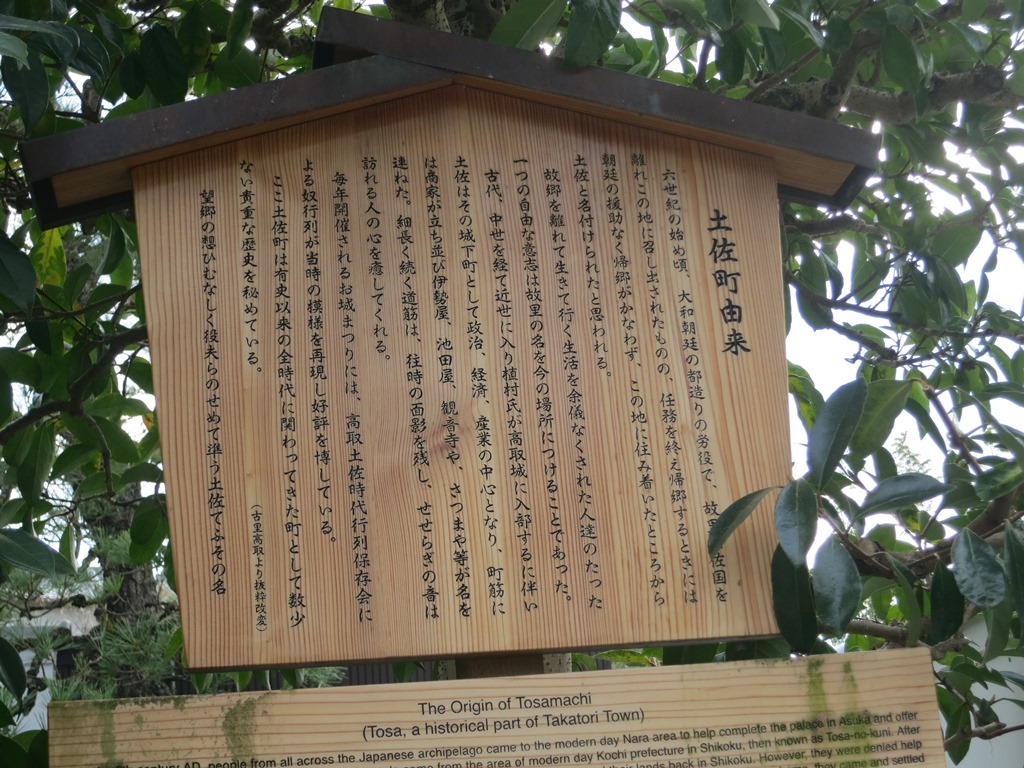 土佐町由来
六世紀の始め頃、大和朝廷の都造りの労役で、故郷佐国を
離れこの地に召し出されたものの、任務を終え帰郷するときには
朝廷の援助なく帰郷がかなわず、この地に住み着いたところから
土佐と名付けられたと思われる。
故郷を離れて生きて行く生活を余儀なくされた人達のたった
一つの自由な意志は故里の名を今の場所につけることであった。
古代、中世を経て近世に入り植村氏が高取城に入部するに伴い
土佐はその城下町として政治、経済、産業の中心となり、町筋に
は商家が立ち並び伊勢屋、池田屋、観音寺や、さつまや等が名を
連ねた。細長く続く道筋は、往時の面影を残し、せせらぎの音は
訪れる人の心を癒してくれる。
毎年開催されるお城まつりには、高取土佐時代行列保存会に
よる奴行列が当時の模様を再現し好評を博している。
ここ土佐町は有史以来の全時代に関わってきた町として数少
ない貴重な歴史を秘めている。
望郷の想ひむなしく役夫らのせめて準う土佐てふその名
（古里高取より抜粋改変）
The Origin of Tosamachi
(Tosa, a historical part of Takatori Town)
century AD, people from all across the Japanese archipelago came to the modern day Nara area to help complete the palace in Asuka and offer
come from the area of modern day Kochi prefecture in Shikoku, then known as Tosa-no-kuni. After
their lands back in Shikoku. However, they were denied help
they came and settled